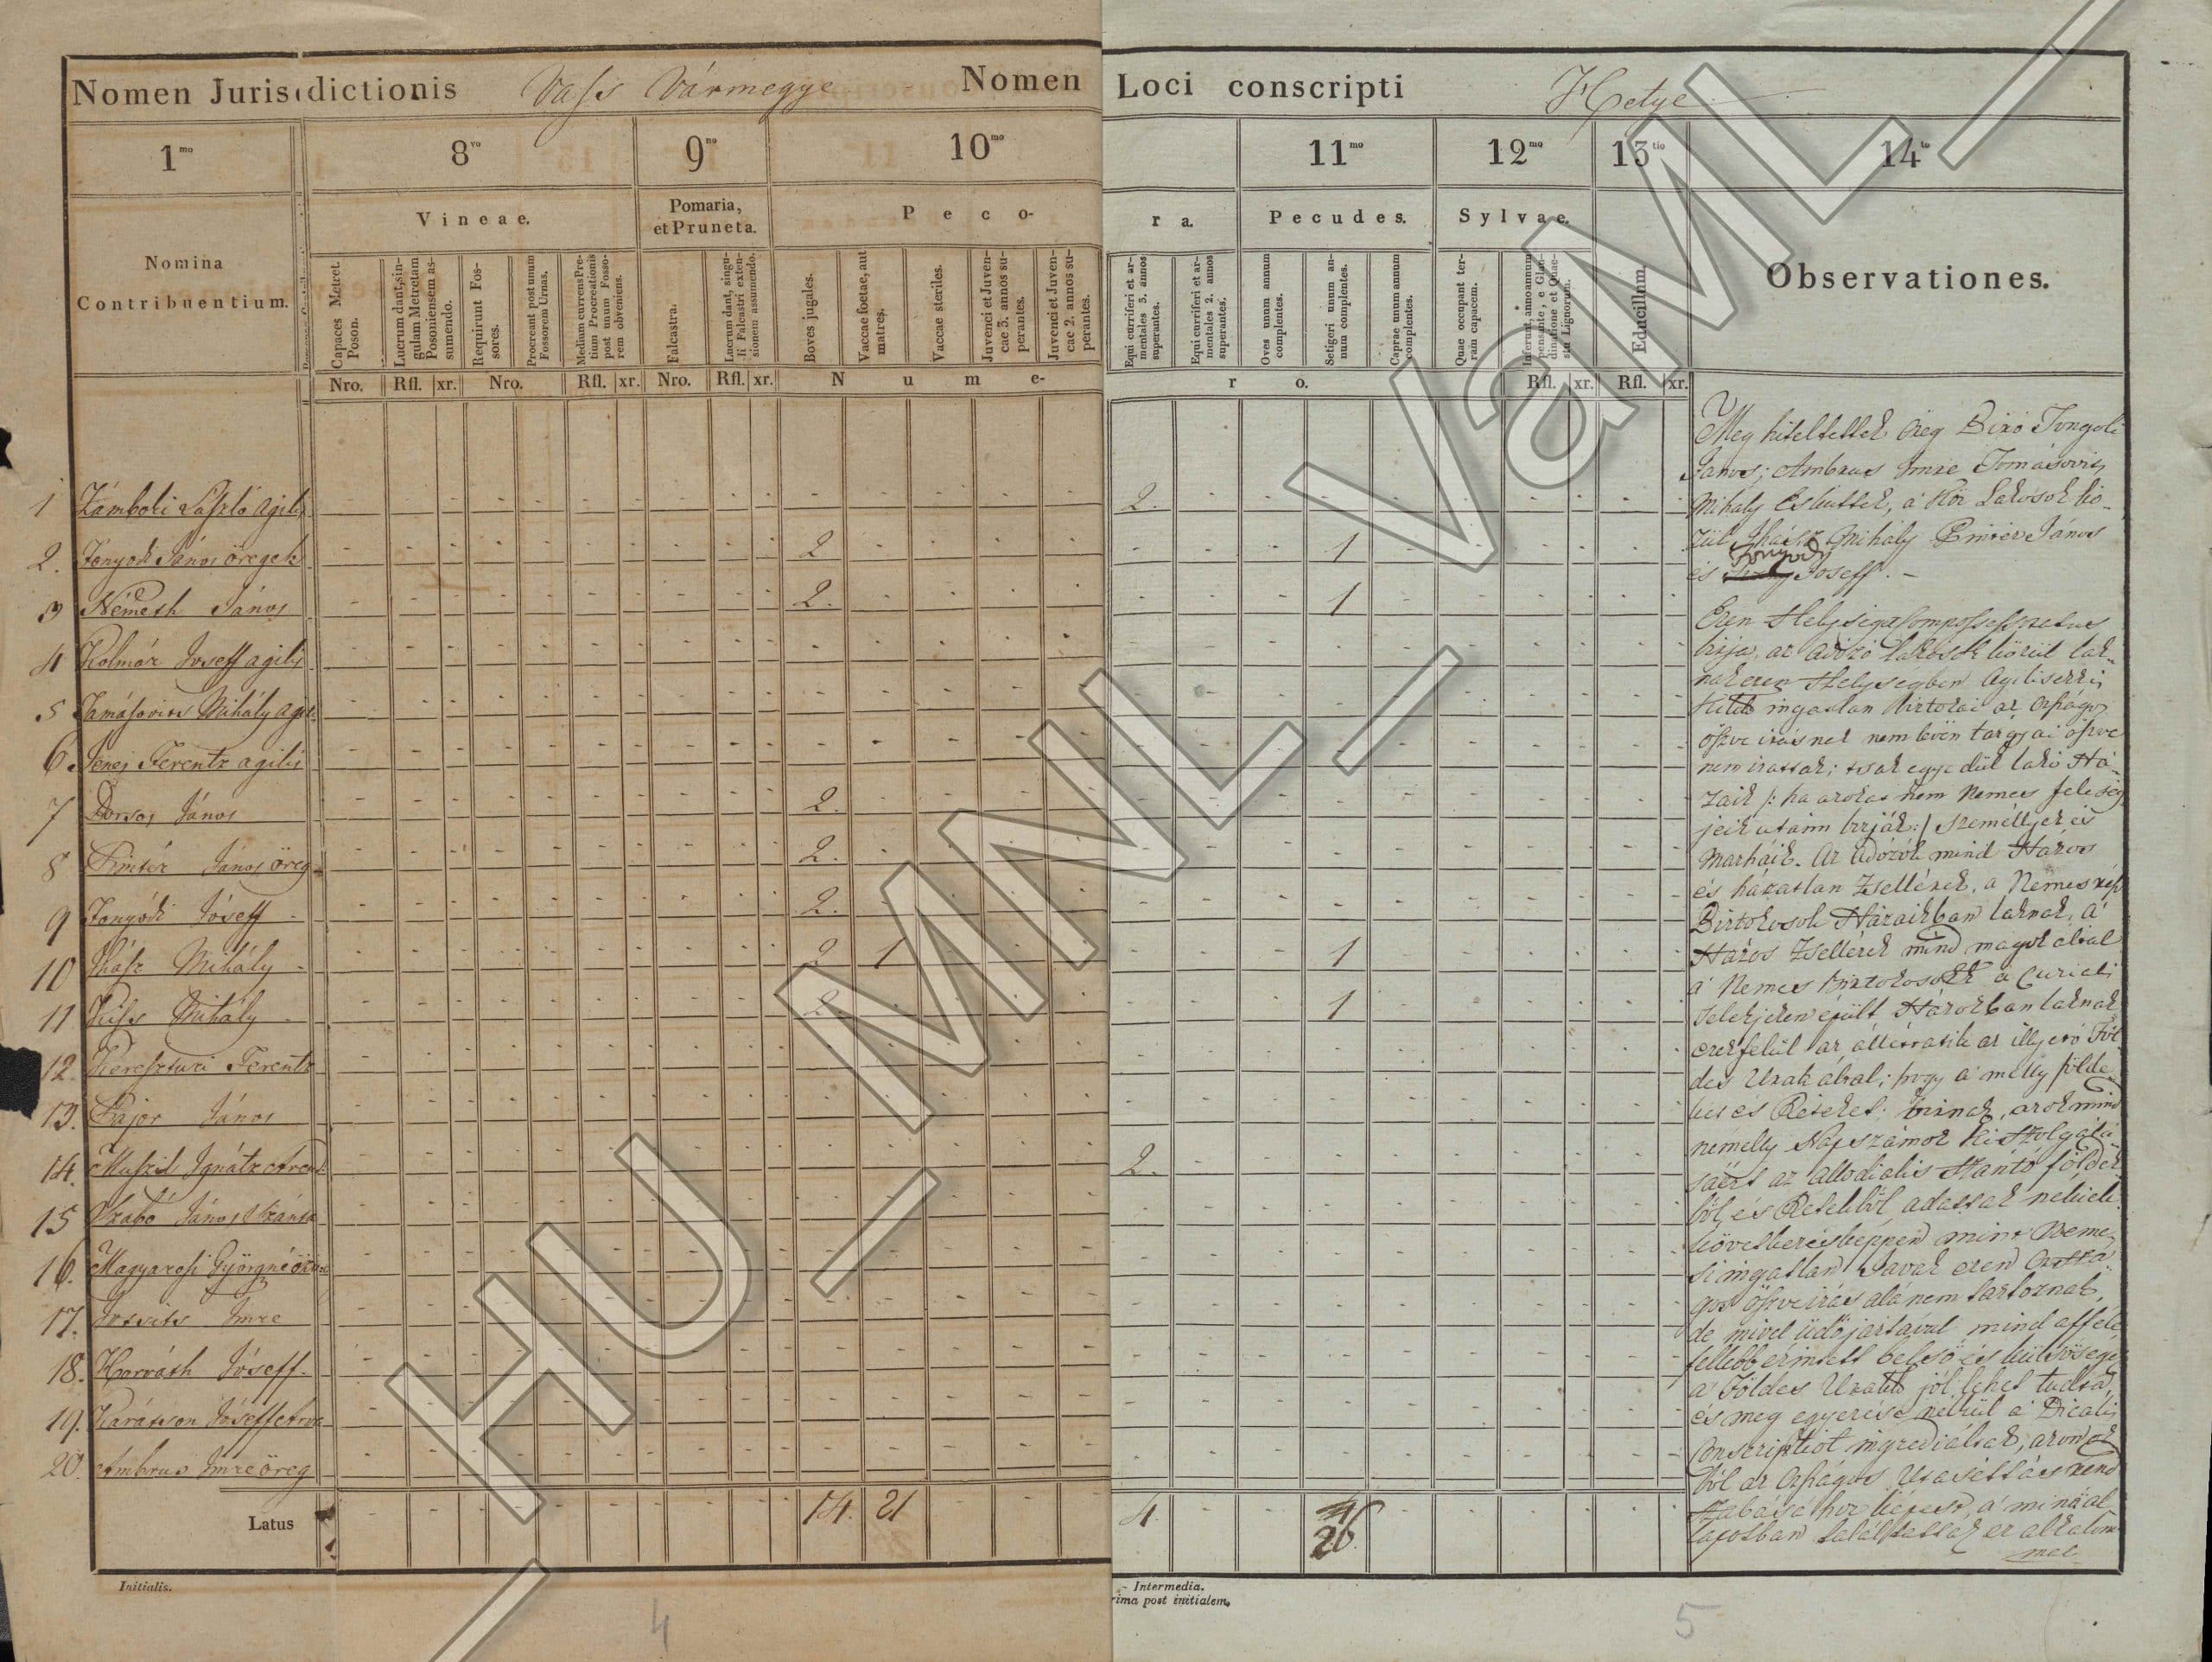 Nomen Jurisdictionis Vass Vármegye Nomen Loci conscripti Hetye
1mo 8vo 9no 10mo 11mo 12mo 13tio 14to
Nomina Contribuentium.
Vineae.
Pomaria, et Pruneta.
Peco-
ra.
Pecudes.
Sylvae.
Observationes.
Capaces Metret. Poson.
Lucrum dant, singulam Metretam Posoniensem assumendo.
Requirunt Fossores.
Procreant post unum Fossorem Urnas.
Medium currens Pretium Procreationis post unum Fossorem obveniens.
Falcastra.
Lucrum dant, singuli Falcastri extensionem assumendo.
Boves jugales.
Vaccae foetae, aut matres.
Vaccae steriles.
Juvenci et Juvencae 3. annos superantes.
Juvenci et Juvencae 2. annos superantes.
Equi curriferi et armentales 3. annos superantes.
Equi curriferi et armentales 2. annos superantes.
Oves unum annum complentes.
Setigeri unum annum complentes.
Caprae unum annum complentes.
Quae occupant terram capacem.
Educillum.
Nro. Rfl. xr. Nro. Rfl. xr. Nro. Rfl. xr. N u m e- r o. Rfl. xr. Rfl. xr.
1 Zámboki László agilis 2.
2. Fonyodi János öregeb 2 1
3 Németh János 2. 1
4 Kolmár Joseff agilis
5 Tamásovits Mihály agil.
6. Jenej Ferentz agilis
7 Dorsos János 2.
8 Pintér János öreg 2.
9 Fonyódi Jóseff 2.
10 Ihász Mihály 2 1 1
11 Kiss Mihály 2. 1
12. Kereszturi Ferentz
13. Pajor János
14. Muszil Ignátz 2.
15 Szabó János
16. Magyarosi Györgyné
17. Imre
18. Horváth Jóseff
19. Karátson Jóseff
20. Ambrus Imre öreg
Latus 14. 21 4. 26.
Meg hiteltettek Öreg Biró
János; Ambrus Imre Tomásovits
Mihály Esküttek, a Köz Lakosok kö-
zül Ihász Mihály Pintér János
és Fonyodi Joseff. -
Ezen Helységet Compossessoratus
birja, az adózó lakosok közül lak-
nak ezen Helységben Agilisek is
ingatlan birtokai az Országos
öszve irásnak nem lévén tárgyai öszve
nem irattak; tsak egyedül lakó Há-
zaik /: ha azokat nem Nemes feleség-
jeik utánn birják :/ személlyek és
Marháik. Az adózók mind Házos
és házatlan Zsellérek, a Nemes rész
Birtokosok Házaikban laknak, a'
Házos Zsellérek mind magok által
a' Nemes birtokosok a Curiali
telekjeken épült Házokban laknak
ezekfelül az állittatik az illyetó Föl-
des Urak által; hogy a' melly földe-
ket és Réteket birnak, azok mind
némelly Napszámok ki szolgálá-
sáért az allodialis Szántó földek-
ből, és Retekből adattak nekiek
követkerésképpen mint Neme-
si ingatlan Javak ezen Orszá-
gos öszveirás alá nem tartoznak,
de mivel üdő jártával mind afféle
fellebb érintett belső és külsőségek
a' Földes Urak jól lehet tudta,
és meg egyezése nélkül a' Dicalis
Conscriptiot ingrediáltak, azon ok-
ból az Országos Utasittás rend
szabása hoz képest, a' mint ál
lapotban találtattak ez alkalom-
mal
Initialis.
Intermedia.
rima post initialem.
4
5
HU_MNL_VaML_